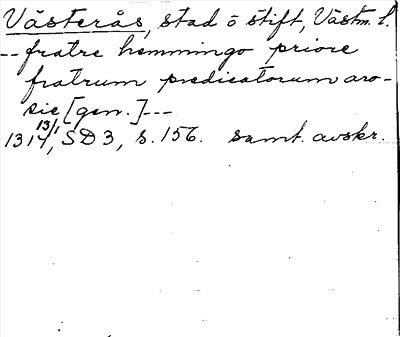 Västerås, stad o stift, Västm. l.
-- fratre hemmingo priore
fratrum predicatorum aro-
sie [gen.] ---
1314 13/1, SD 3, s. 156. samt. avskr.